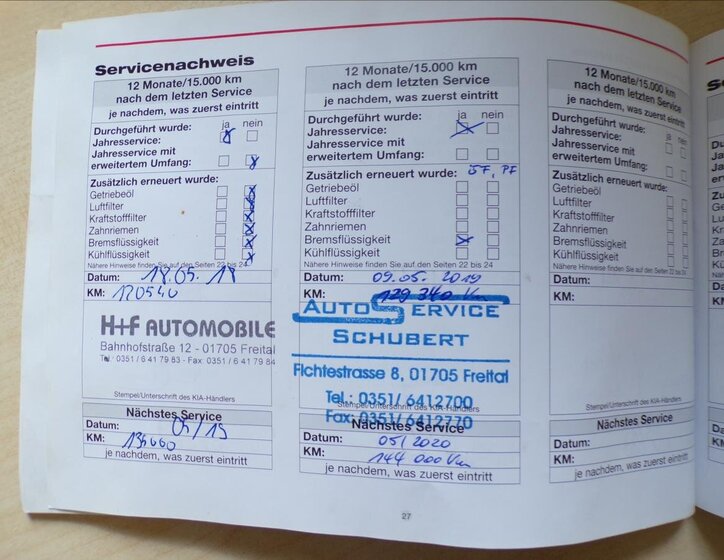 Servicenachweis
12 Monate/15.000 km
nach dem letzten Service
je nachdem, was zuerst eintritt
Durchgeführt wurde: ja nein
Jahresservice:
Jahresservice mit
erweitertem Umfang:
Zusätzlich erneuert wurde:
Getriebeöl
Luftfilter
Kraftstofffilter
Zahnriemen
Bremsflüssigkeit
Kühlflüssigkeit
Nähere Hinweise finden Sie auf den Seiten 22 bis 24
Datum: 18.05.18
KM: 120540
H+F AUTOMOBILE
Bahnhofstraße 12 - 01705 Freital
Tel.: 0351 / 6 41 79 83 · Fax: 0351 / 6 41 79 84
Stempel/Unterschrift des KIA-Händlers
Nächstes Service
Datum: 05/19
KM:
je nachdem, was zuerst eintritt
12 Monate/15.000 km
nach dem letzten Service
je nachdem, was zuerst eintritt
Durchgeführt wurde: ja nein
Jahresservice:
Jahresservice mit
erweitertem Umfang:
Zusätzlich erneuert wurde: BF, PF
Getriebeöl
Luftfilter
Kraftstofffilter
Zahnriemen
Bremsflüssigkeit
Kühlflüssigkeit
Nähere Hinweise finden Sie auf den Seiten 22 bis 24
Datum: 09.05.2019
KM: 129 340 km
AUTOSERVICE
SCHUBERT
Fichtestrasse 8, 01705 Freital
Tel.: 0351/ 6412700
Stempel/Unterschrift des KIA-Händlers
Fax: 0351/ 6412770
Nächstes Service
Datum: 05/2020
KM: 144 000 km
je nachdem, was zuerst eintritt
12 Monate/15.000 km
nach dem letzten Service
je nachdem, was zuerst eintritt
Durchgeführt wurde: ja nein
Jahresservice:
Jahresservice mit
erweitertem Umfang:
Zusätzlich erneuert wurde:
Getriebeöl
Luftfilter
Kraftstofffilter
Zahnriemen
Bremsflüssigkeit
Kühlflüssigkeit
Nähere Hinweise finden Sie auf den Seiten 22 bis 24
Datum:
KM:
Stempel/Unterschrift des KIA-Händlers
Nächstes Service
Datum:
KM:
je nachdem, was zuerst eintritt
27